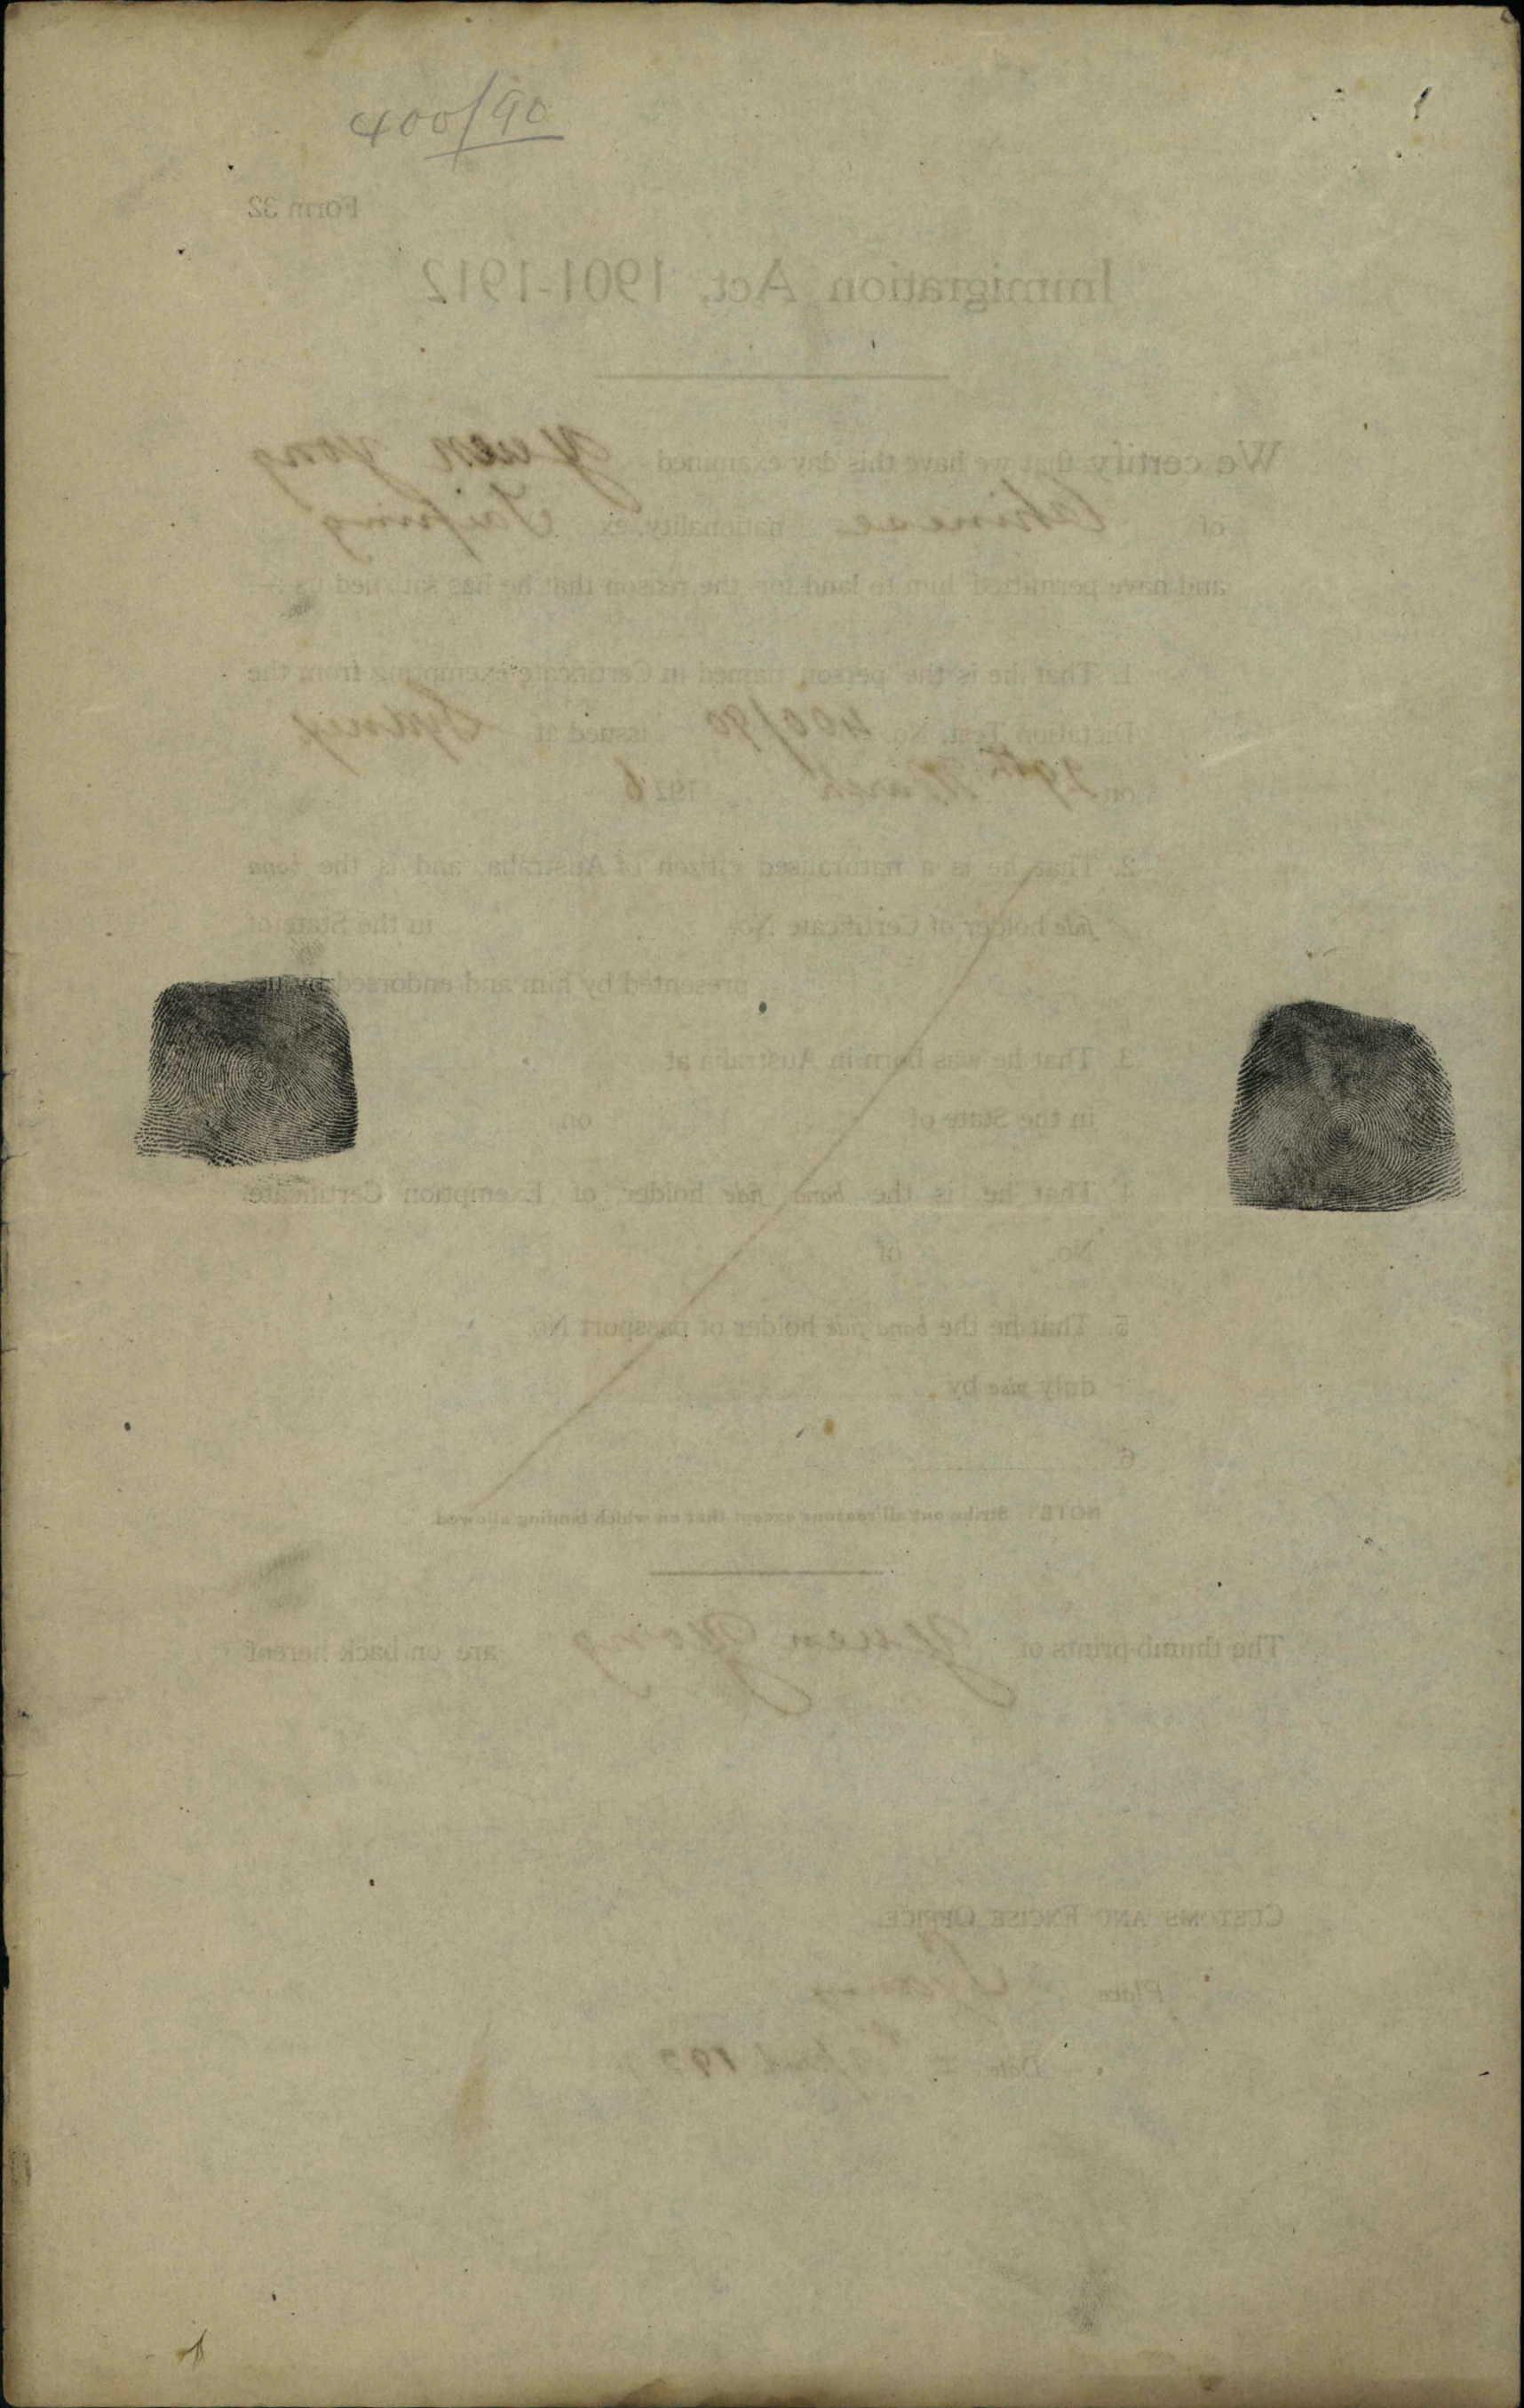 400/90
Form 32
Immigration Act, 1901-1912
We certify that we have this day examined Yuen Yong
of Chinese nationality, ex Taiping
and have permitted him to land for the reason that he has satisfied us :—
1. That he is the person named in Certificate exempting from the
Dictation Test, No. 400/90 issued at Sydney
on 29th March 1926
2. That he is a naturalised citizen of Australia and is the bona
fide holder of Certificate No. in the State of
presented by him and endorsed by
3. That he was born in Australia at
in the State of on
4. That he is the bona fide holder of Exemption Certificate
No. of
5. That he the bona fide holder of passport No.
duly vise by
6.
NOTE: Strike out all reasons except that on which landing allowed.
The thumb-prints of Yuen Yong are on back hereof
CUSTOMS AND EXCISE OFFICE,
Place
Date 192